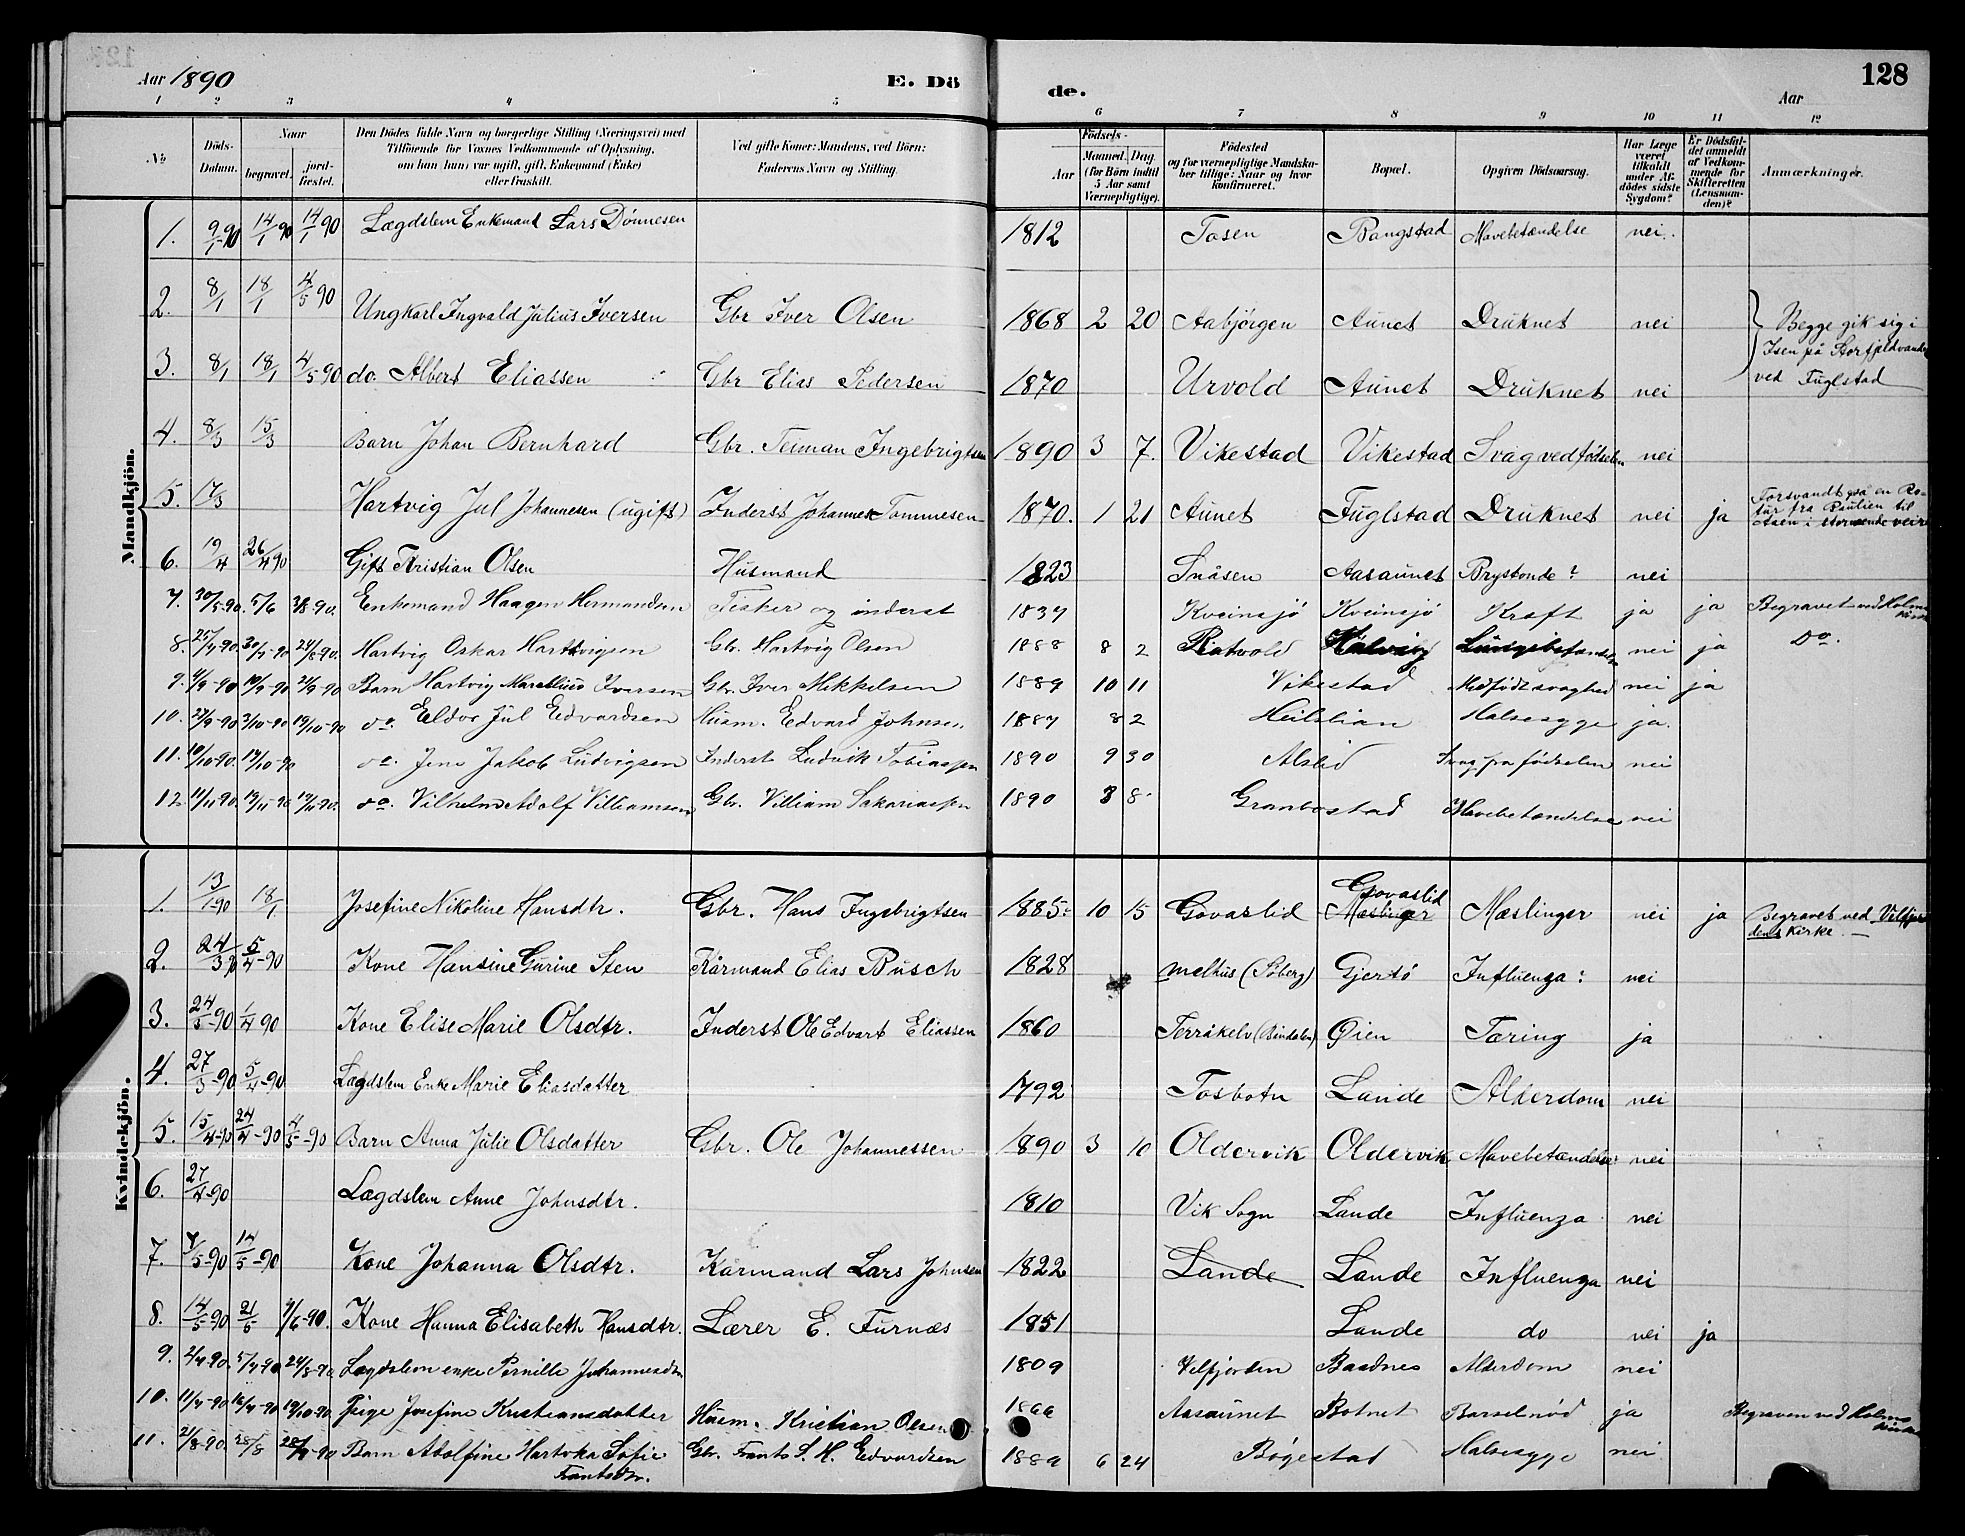 Aar 1890
E. Dö
de.
Aar
128
1 2 3 4 5 6 7 8 9 10 11 12
No
Döds-Datum.
Naar
begravet.
jord-fæstet.
Den Dödes fulde Navn og borgerlige Stilling (Næringsvei) med
Tilföiende for Voxnes Vedkommende af Oplysning,
om han (hun) var ugift, gift, Enkemand (Enke)
eller fraskilt.
Ved gifte Koner: Mandens, ved Börn:
Faderens Navn og Stilling.
Födsels-
Aar
Maaned. Dag
(for Börn indtil
5 Aar samt
Værnepligtige).
Födested
og for værnepligtige Mandska-
ber tillige: Naar og hvor
konfirmeret.
Bopæl.
Opgiven Dödsaarsag.
Har Læge
været
tilkaldt
under Af-
dödes sidste
Sygdom?
Er Dödsfal-
det anmeldt
af Vedkom-
mende for
Skifteretten
(Lensman-
den)?
Anmærkninger.
Mandkjön.
1. 9/1-90 14/1 90 14/1 90 Lægdslem Enkemand Lars Dönnesen 1812 Tosen Bangstad Mavebetændelse nei.
2. 8/1 18/1 4/5 90 Ungkarl Ingvald Julius Iversen Gbr Iver Olsen 1868 2 20 Aabjörgen Aunet Druknet nei Begge gik sig i
Isen på Storfjeldvande
ved Fuglstad
3. 8/1 18/1 4/5 90 do. Albert Eliassen Gbr Elias Pedersen 1870 Urvold Aunet Druknet nei
4. 8/3 15/3 Barn Johan Bernhard Gbr. Teiman Ingebrigtsen 1890 3 7. Vikestad Vikestad Svag ved fødselen nei
5. 17/3 Hartvig Jul Johannesen (ugift) Inderst Johannes Tommesen 1870. 1 21 Aunet Fuglstad Druknet nei ja Forsvandt på en Ro-
tur fra Paulien til
Aasen i stormende veir
6. 19/4 26/4 90 Gift Kristian Olsen Husmand 1823 Snåsen Aasaunet Brystonde? nei
7. 30/5-90 5/6 3/8-90. Enkemand Haagen Hermandsen Fisker og inderst 1837 Kveinsjö Kveinsjö Kræft ja ja Begravet ved Holms
kirke
8. 25/7-90. 30/7-90 24/8-90. Hartvig Oskar Hartvigsen Gbr. Hartvig Olsen 1888 8 2 nei ja Do.
9. 4/9-90 10/9-90 21/9-90 Barn Hartvig Marellius Iversen Gbr. Iver Mikkelsen 1889 10 11 Vikestad Medfödt svaghed nei ja
10. 27/9-90 3/10-90 19/10-90 do. Eldor Jul Edvardsen Husm. Edvard Johnsen 1887 8 2 Heilstian Halsesyge ja.
11. 10/10-90. 17/10-90 do. Jens Jakob Ludvigsen Inderst Ludvik Tobiassen 1890 9 30 Alslid Svag fra födselen nei
12 11/11 90. 19/11-90 do. Vilhelm Adolf Villiamsen Gbr. Villiam Sakariassen 1890 3 8 Granbostad Mavebetændelse nei
Kvindekjön.
1. 13/1-90 18/1 Josefine Nikoline Hansdtr. Gbr. Hans Ingebrigtsen 1885 10 15 Govaslid Govaslid Mæslinger Mæslinger nei ja Begravet ved Velfjor
dens Kirke.
2. 24/3 90 5/4-90 Kone Hansine Gurine Sten Kårmand Elias Busch 1828 Melhus (Söberg) Gjertö Influenza? nei
3. 24/3-90 1/4 90 Kone Elise Marie Olsdtr. Inderst Ole Edvart Eliassen 1860 Terråkelv (Bindalen) Øien Tæring ja
4. 27/3-90 5/4-90 Lægdslem Enke Marie Eliasdatter 1792 Tosbotn Lande Alderdom nei
5. 15/4-90 24/4-90 4/5-90 Barn Anna Julie Olsdatter Gbr. Ole Johannessen 1890 3 10 Oldervik Oldervik Mavebetændelse nei
6. 27/4-90 Lægdslem Anne Johnsdtr. 1810 Vik Sogn Lande Influenza nei
7. 7/5-90 14/5-90 Kone Johanna Olsdtr. Kårmand Lars Johnsen 1822 Lande Lande Influenza nei
8. 14/5-90 21/5 4/6-90. Kone Hanna Elisabeth Hansdtr. Lærer E. Furnæs 1851 Lande do nei ja
9. 2/7-90. 5/7-90 24/8-90 Lægdslem enke Pernille Johannesdtr 1809 Velfjorden Baadnes Alderdom nei
10. 11/7-90 16/7-90 19/10-90. Pige Josefine Kristiansdatter Husm. Kristian Olsen 1866 Aasaunet Botnet Barselnöd ja Begraven ved Holms
kirke
11. 21/8-90. 28/8 Barn Adolfine Hartvka Sofie
Frantsdtr. Gbr. Frants S. H. Edvardsen 1889 6 24 Bögestad Halsesyge nei